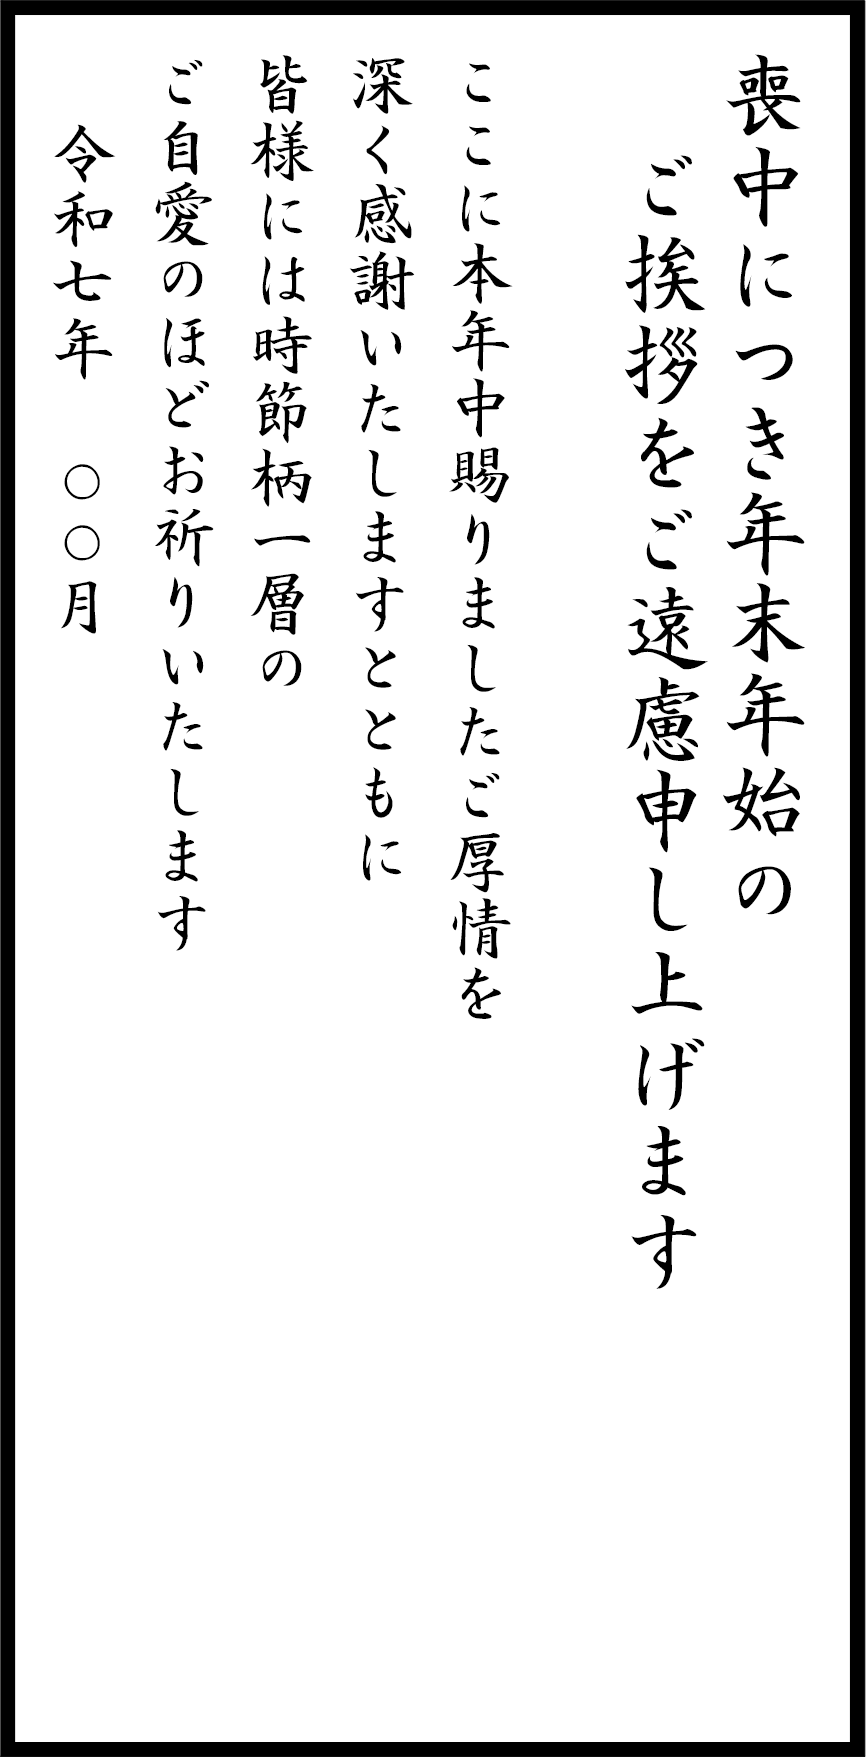 喪中につき年末年始の
ご挨拶をご遠慮申し上げます
ここに本年中賜りましたご厚情を
深く感謝いたしますとともに
皆様には時節柄一層の
ご自愛のほどお祈りいたします
令和七年　○○月